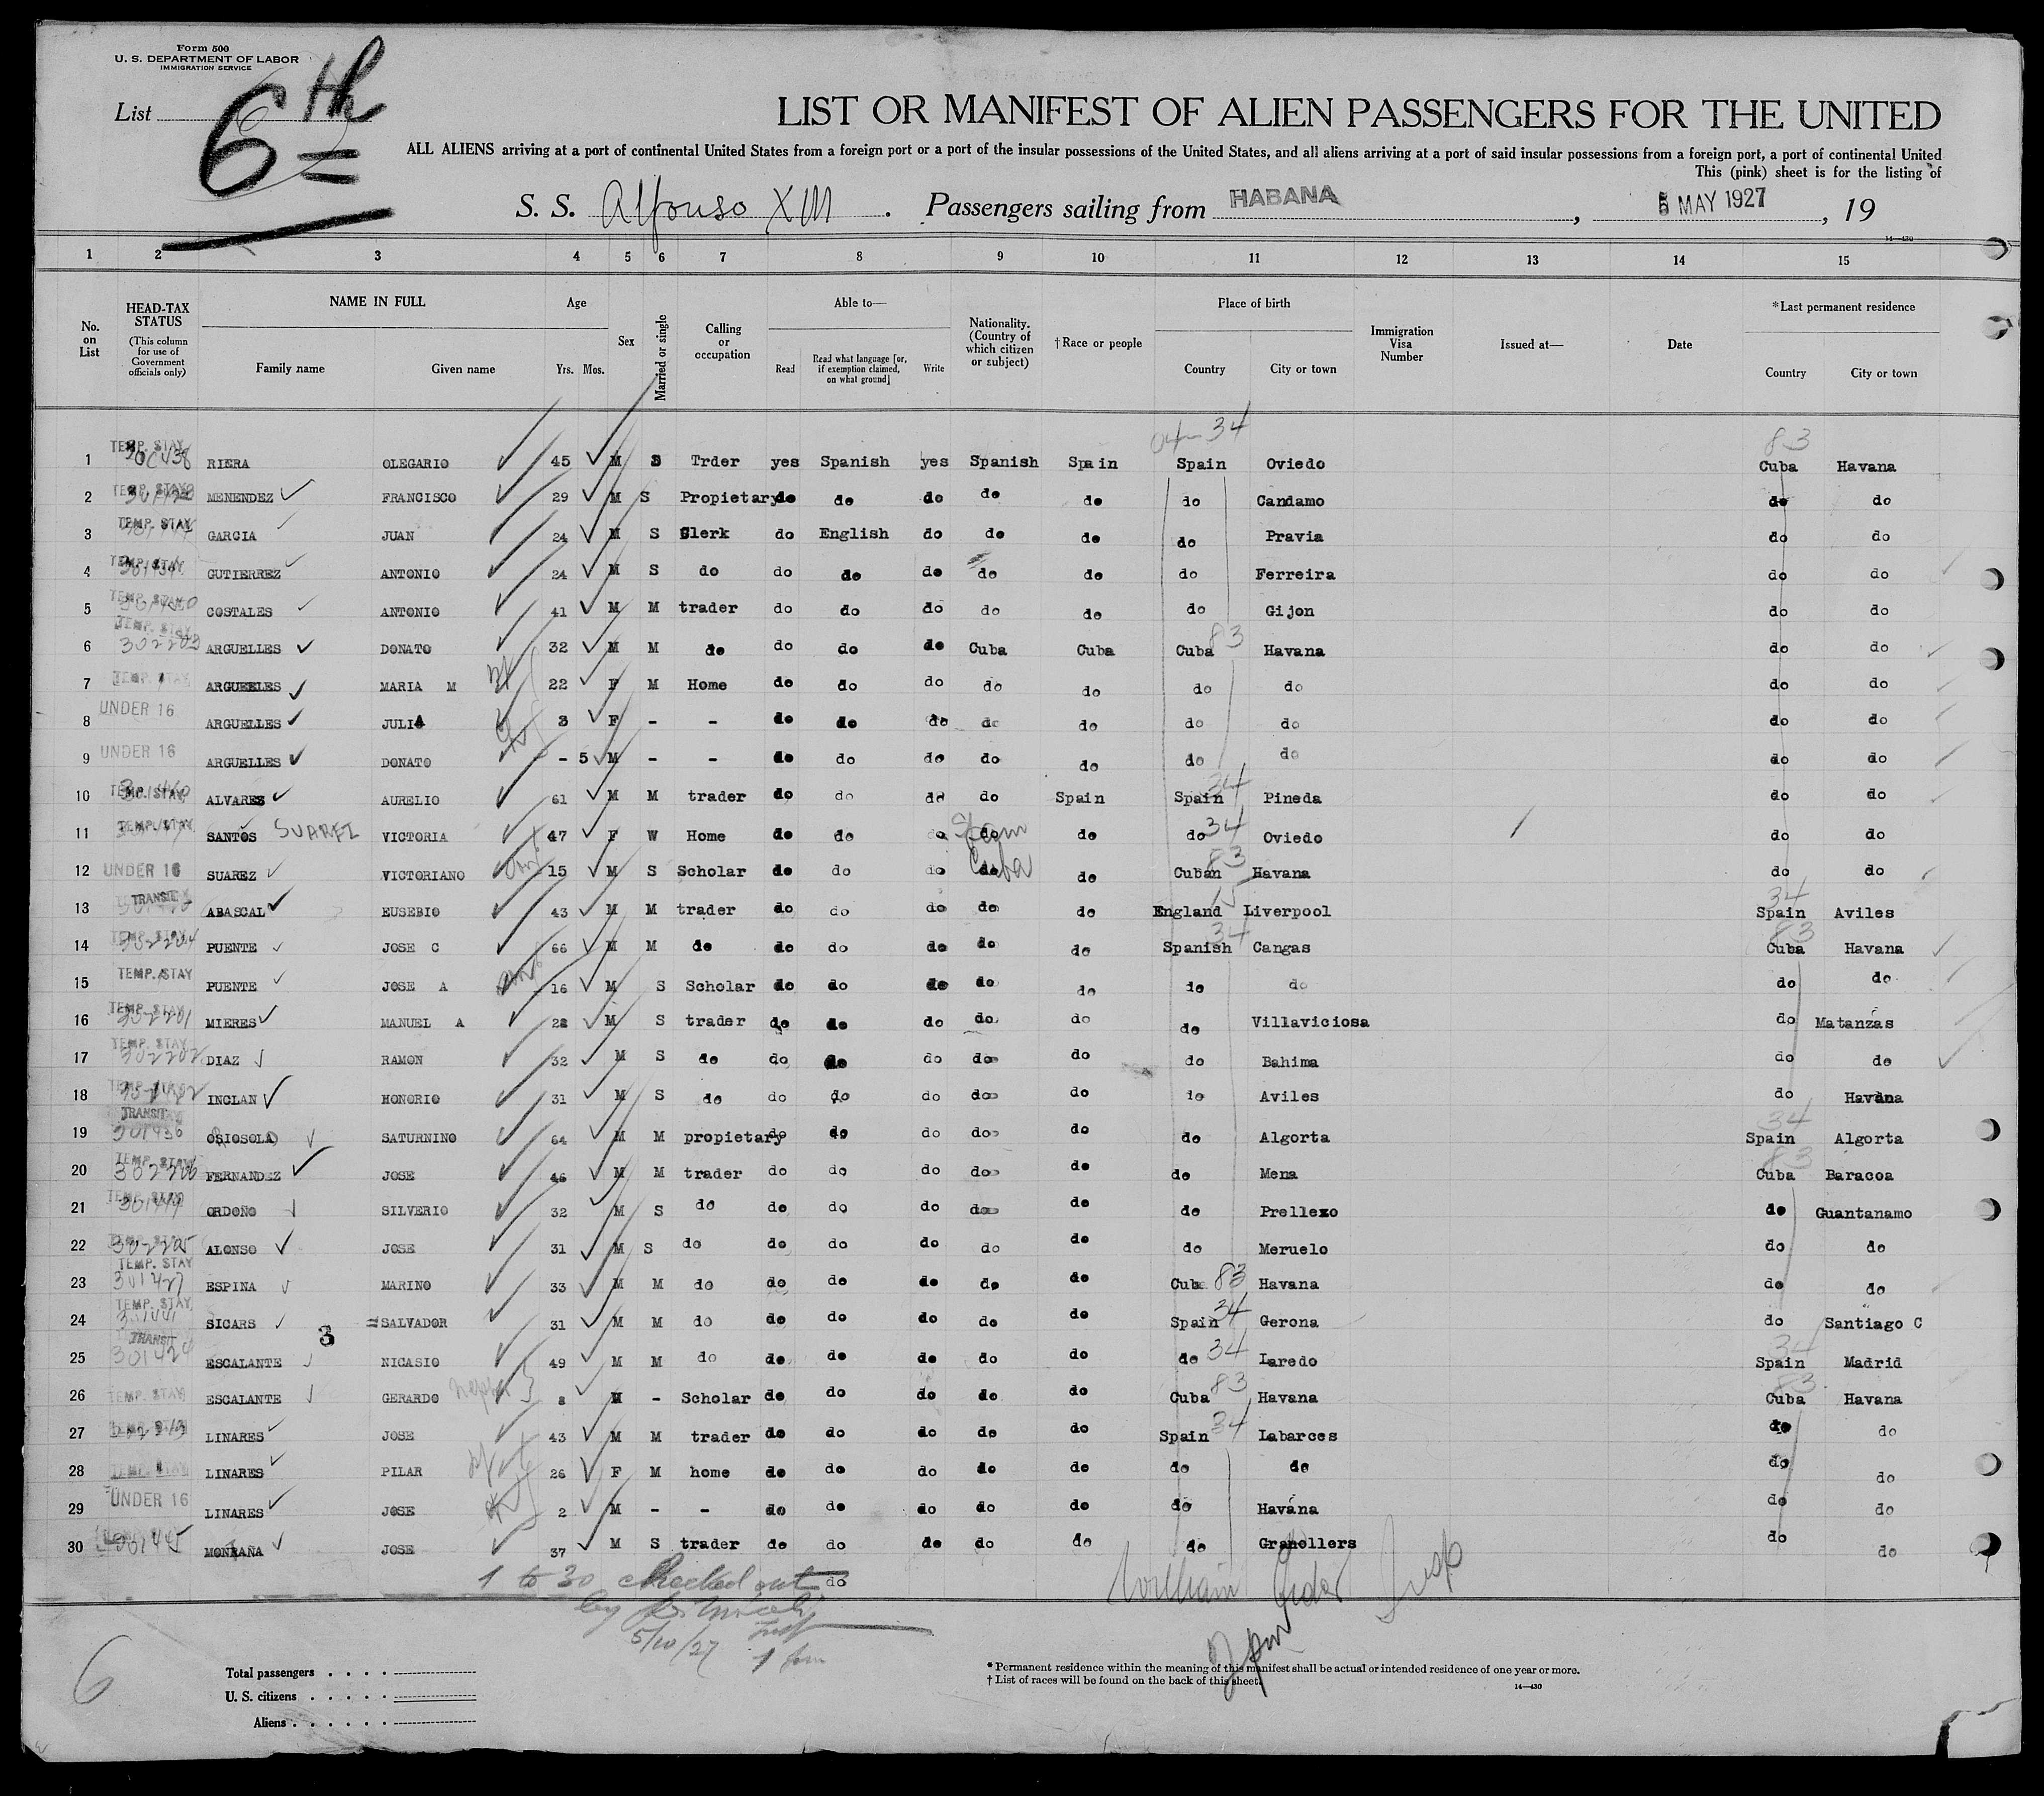 Form 500
U. S. DEPARTMENT OF LABOR
IMMIGRATION SERVICE
List 6th
LIST OR MANIFEST OF ALIEN PASSENGERS FOR THE UNITED
ALL ALIENS arriving at a port of continental United States from a foreign port or a port of the insular possessions of the United States, and all aliens arriving at a port of said insular possessions from a foreign port, a port of continental United
This (pink) sheet is for the listing of
S. S. Alfonso XIII. Passengers sailing from HABANA, 5 MAY 1927, 19
14—430
1 2 3 4 5 6 7 8 9 10 11 12 13 14 15
No. on List HEAD-TAX STATUS (This column for use of Government officials only) NAME IN FULL Family name Given name Age Yrs. Mos. Sex Married or single Calling or occupation Able to— Read Read what language [or, if exemption claimed, on what ground] Write Nationality. (Country of which citizen or subject) †Race or people Place of birth Country City or town Immigration Visa Number Issued at— Date *Last permanent residence Country City or town
04-34 83
1 TEMP. STAY RIERA OLEGARIO 45 M S Trder yes Spanish yes Spanish Spain Spain Oviedo Cuba Havana
2 TEMP. STAY MENENDEZ FRANCISCO 29 M S Propietary do do do do do do Candamo do do
3 TEMP. STAY GARCIA JUAN 24 M S Clerk do English do do do do Pravia do do
4 TEMP. STAY GUTIERREZ ANTONIO 24 M S do do do do do do do Ferreira do do
5 TEMP. STAY COSTALES ANTONIO 41 M M trader do do do do do do Gijon do do
6 TEMP. STAY 302203 ARGUELLES DONATO 32 M M do do do do Cuba Cuba Cuba 83 Havana do do
7 TEMP. STAY ARGUELLES MARIA M 22 F M Home do do do do do do do do do
8 UNDER 16 ARGUELLES JULIA 3 F - - do do do do do do do do do
9 UNDER 16 ARGUELLES DONATO - 5 M - - do do do do do do do do do
10 TEMP. STAY ALVARES AURELIO 61 M M trader do do do do Spain Spain 34 Pineda do do
11 TEMP. STAY SANTOS SUAREZ VICTORIA 47 F W Home do do do do Spain do do 34 Oviedo do do
12 UNDER 16 SUAREZ VICTORIANO 15 M S Scholar do do do do Cuba do Cuban 83 Havana do do
13 TRANSIT ABASCAL EUSEBIO 43 M M trader do do do do do England 15 Liverpool Spain 34 Aviles
14 TEMP. STAY 302204 PUENTE JOSE C 66 M M do do do do do do Spanish 34 Cangas Cuba 83 Havana
15 TEMP. STAY PUENTE JOSE A 16 M S Scholar do do do do do do do do do
16 TEMP. STAY 302201 MIERES MANUEL A 22 M S trader do do do do do do Villaviciosa do Matanzas
17 TEMP. STAY 302202 DIAZ RAMON 32 M S do do do do do do do Bahima do do
18 TEMP. STAY INCLAN HONORIO 31 M S do do do do do do do Aviles do Havana
19 TRANSIT 301436 OSIOSOLA SATURNINO 64 M M propietary do do do do do do Algorta Spain 34 Algorta
20 TEMP. STAY 302206 FERNANDEZ JOSE 46 M M trader do do do do do do Mena Cuba 83 Baracoa
21 TEMP. STAY ORDOÑO SILVERIO 32 M S do do do do do do do Prellezo do Guantanamo
22 TEMP. STAY 302205 ALONSO JOSE 31 M S do do do do do do do Meruelo do do
23 TEMP. STAY 301427 ESPINA MARINO 33 M M do do do do do do Cuba 83 Havana do do
24 TEMP. STAY SICARS SALVADOR 31 M M do do do do do do Spain 34 Gerona do Santiago C
25 TRANSIT 301424 ESCALANTE 3 NICASIO 49 M M do do do do do do do 34 Laredo Spain 34 Madrid
26 TEMP. STAY ESCALANTE GERARDO nephew 8 M - Scholar do do do do do Cuba 83 Havana Cuba 83 Havana
27 TEMP. STAY LINARES JOSE 43 M M trader do do do do do Spain 34 Labarces do do
28 TEMP. STAY LINARES PILAR 26 F M home do do do do do do do do do
29 UNDER 16 LINARES JOSE 2 M - - do do do do do do Havana do do
30 301445 MONTAÑA JOSE 37 M S trader do do do do do do Granollers do do
1 to 30 checked out do
by Insp
5/10/27
William Insp
6
Total passengers
U. S. citizens
Aliens
* Permanent residence within the meaning of this manifest shall be actual or intended residence of one year or more.
† List of races will be found on the back of this sheet.
14—430